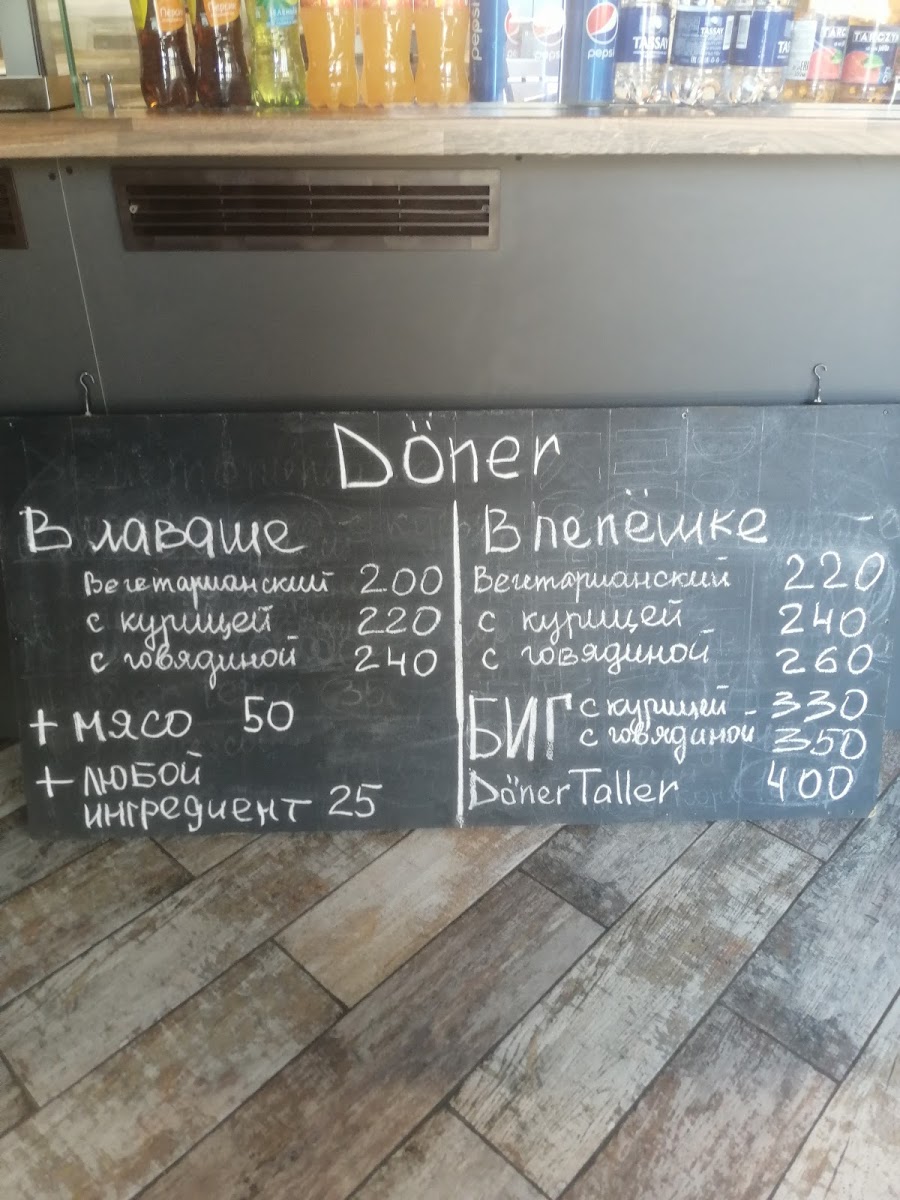 Персик
Персик
ЗЕЛЁНЫЙ
pepsi
pepsi
pepsi
TASSAY
TASSAY
TASSAY
TARCZYN
Döner
В лаваше
Вегетарианский 200
с курицей 220
с говядиной 240
+ мясо 50
+ любой
ингредиент 25
В лепёшке
Вегетарианский 220
с курицей 240
с говядиной 260
БИГ с курицей - 330
с говядиной 350
DönerTaller 400